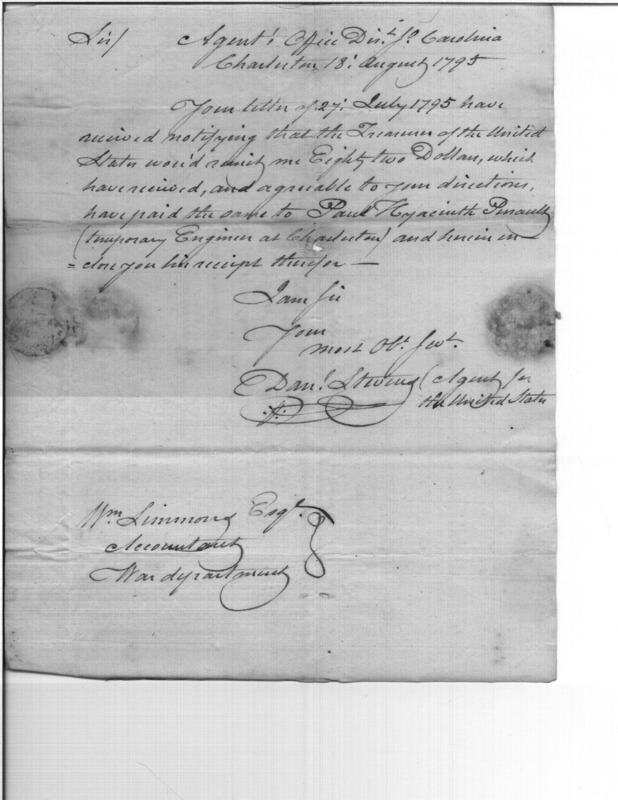 Sir/ Agent's Office Dist. So. Carolina
Charleston 18: August 1795
Your letter of 27: July 1795 have
received notifying that the Treasurer of the United
States wou'd remit me Eighty two Dollars, which
have received, and agreeable to your directions,
have paid the same to Paul Hyacinth Perault
(temporary Engineer at Charleston) and herein in
=close you his receipt therefor —
I am Sir
Your
most Obt. Servt.
Danl. Stevens (Agent for
the United States
Wm Simmons Esqr.
Accountant
War department